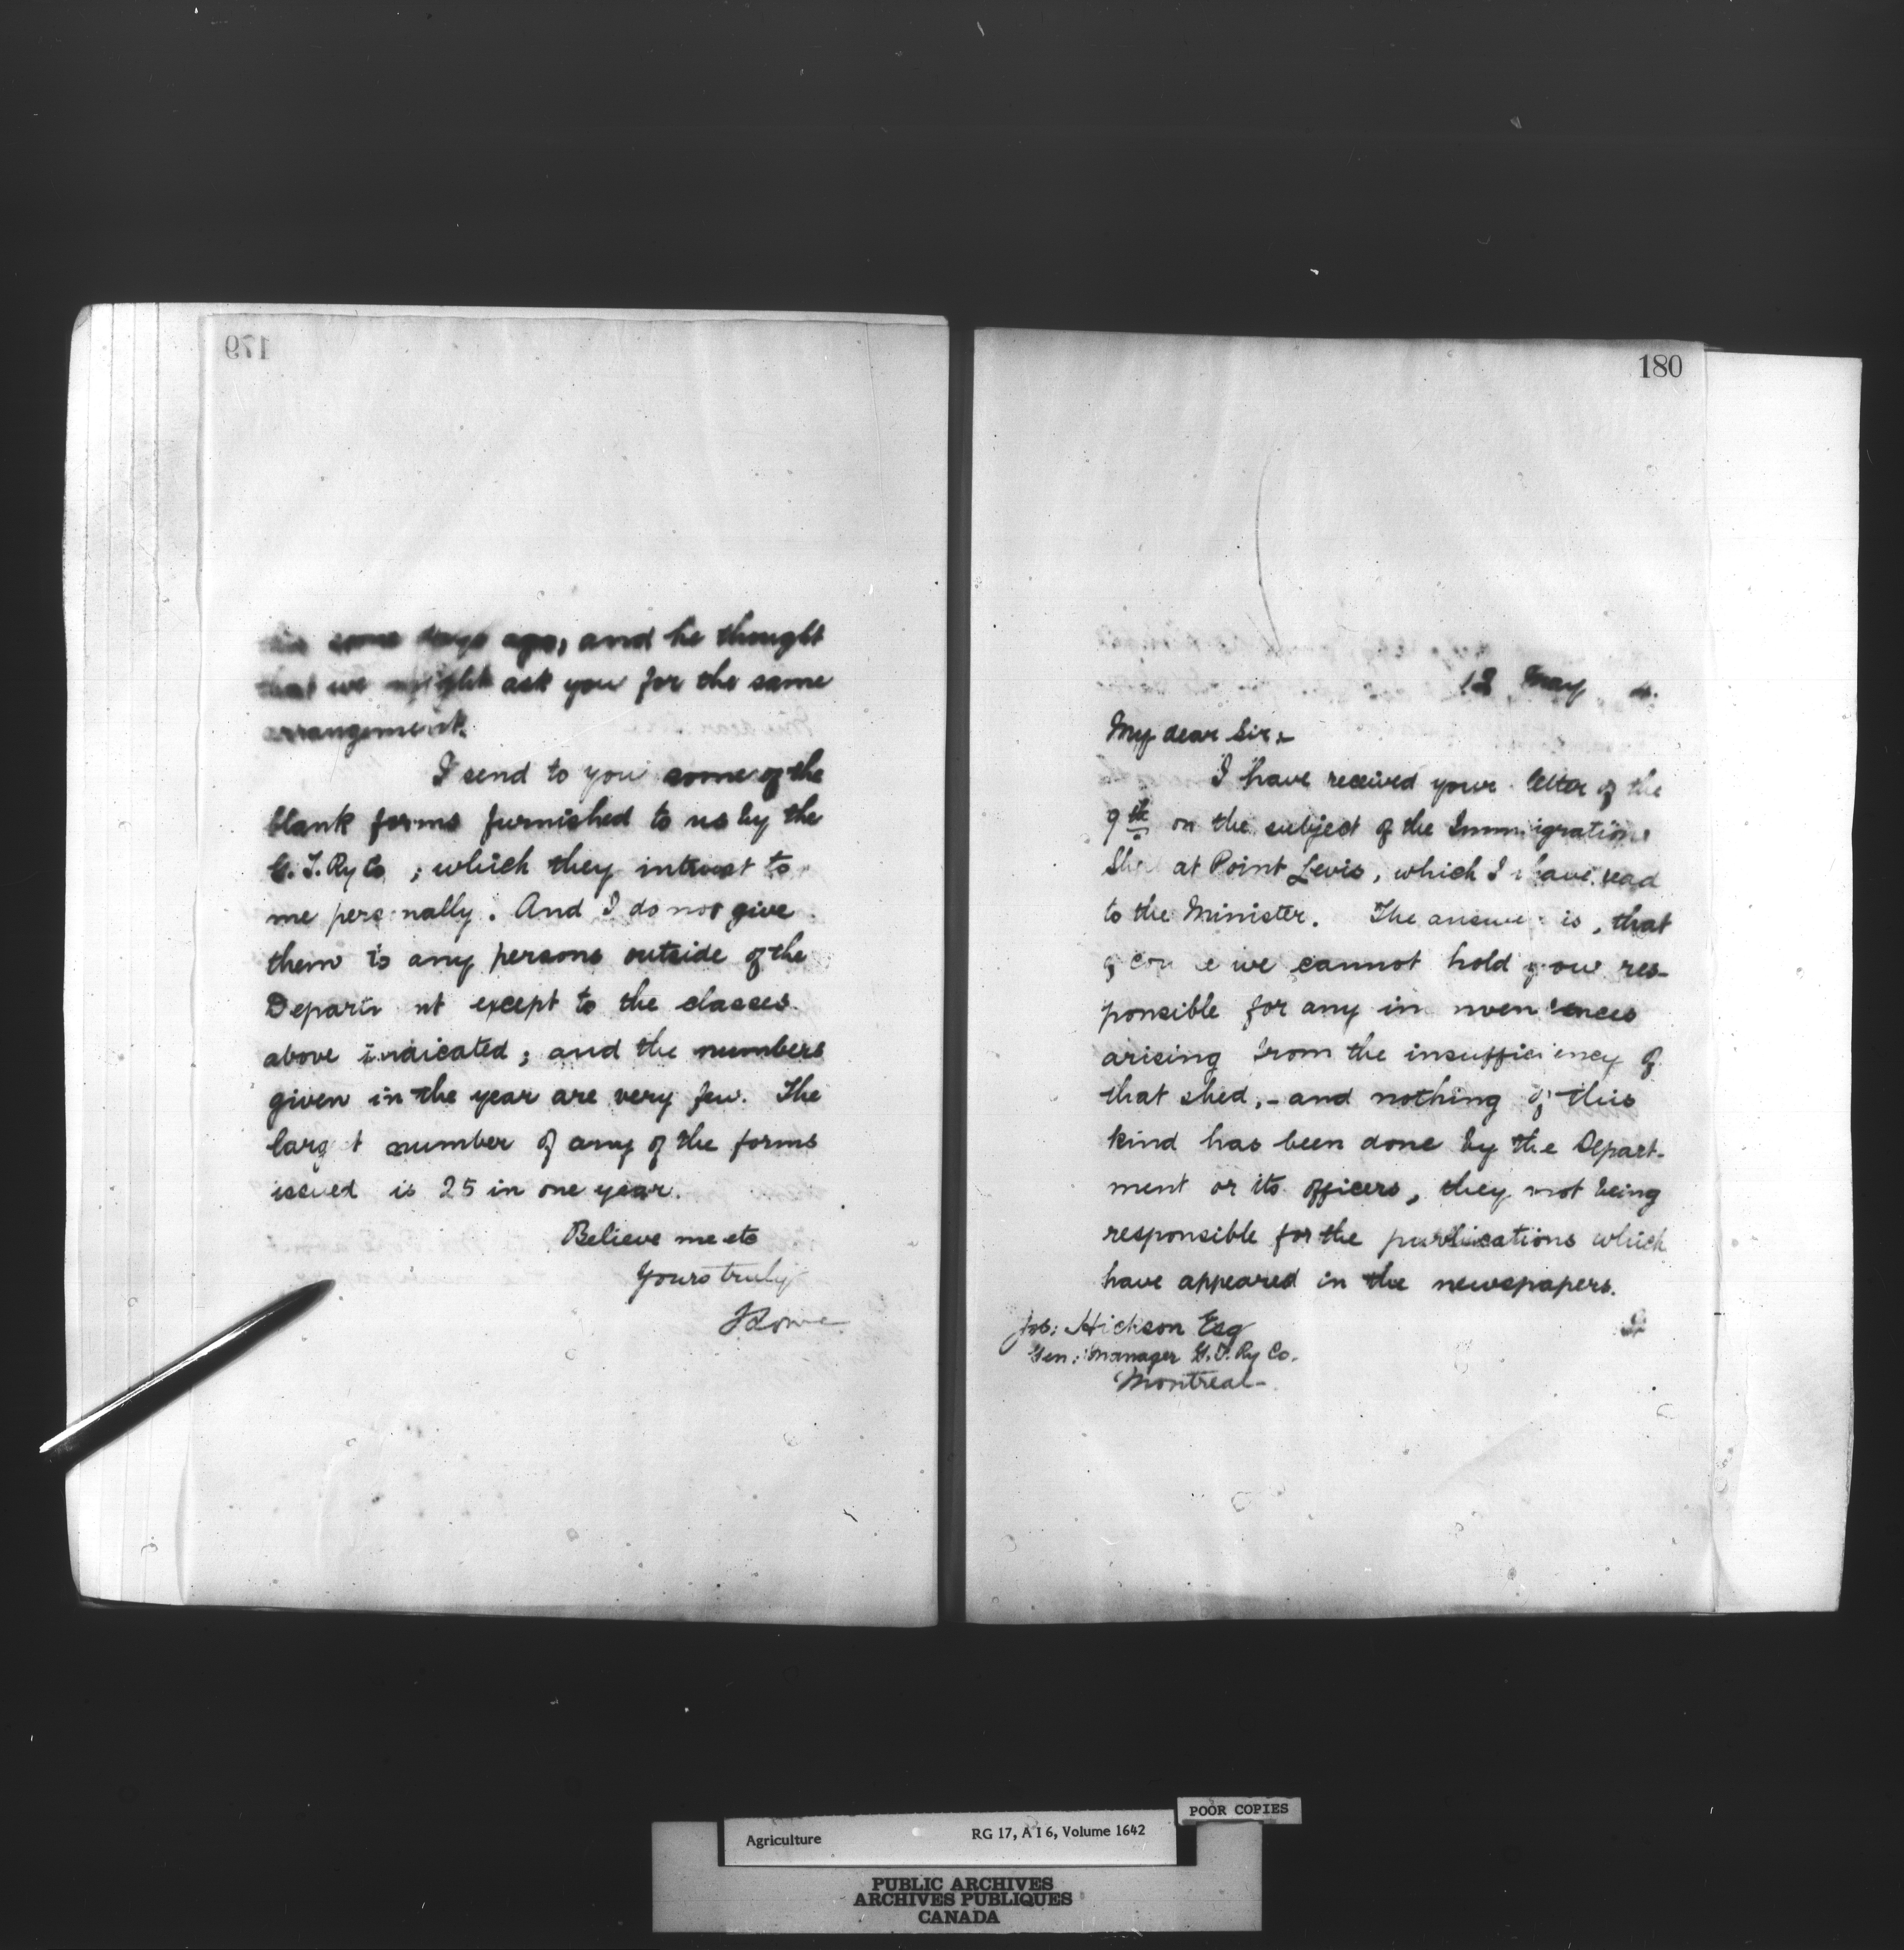 179
some days ago, and he thought
that we might ask you for the same
arrangement.
I send to you some of the
blank forms furnished to us by the
G. T. Ry Co ; which they intrust to
me personally. And I do not give
them to any persons outside of the
Department except to the classes
above indicated; and the numbers
given in the year are very few. The
largest number of any of the forms
issued is 25 in one year.
Believe me etc
Yours truly
JLowe
180
12 May 4.
My dear Sir:-
I have received your letter of the
9th on the subject of the Immigration
Shed at Point Levis, which I have read
to the Minister. The answer is, that
of course we cannot hold you res-
ponsible for any inconveniences
arising from the insufficiency of
that shed,- and nothing of this
kind has been done by the Depart-
ment or its officers, they not being
responsible for the publications which
have appeared in the newspapers.
Jos: Hickson Esq
Gen: Manager G.T. Ry Co.
Montreal-
POOR COPIES
Agriculture RG 17, A I 6, Volume 1642
PUBLIC ARCHIVES
ARCHIVES PUBLIQUES
CANADA